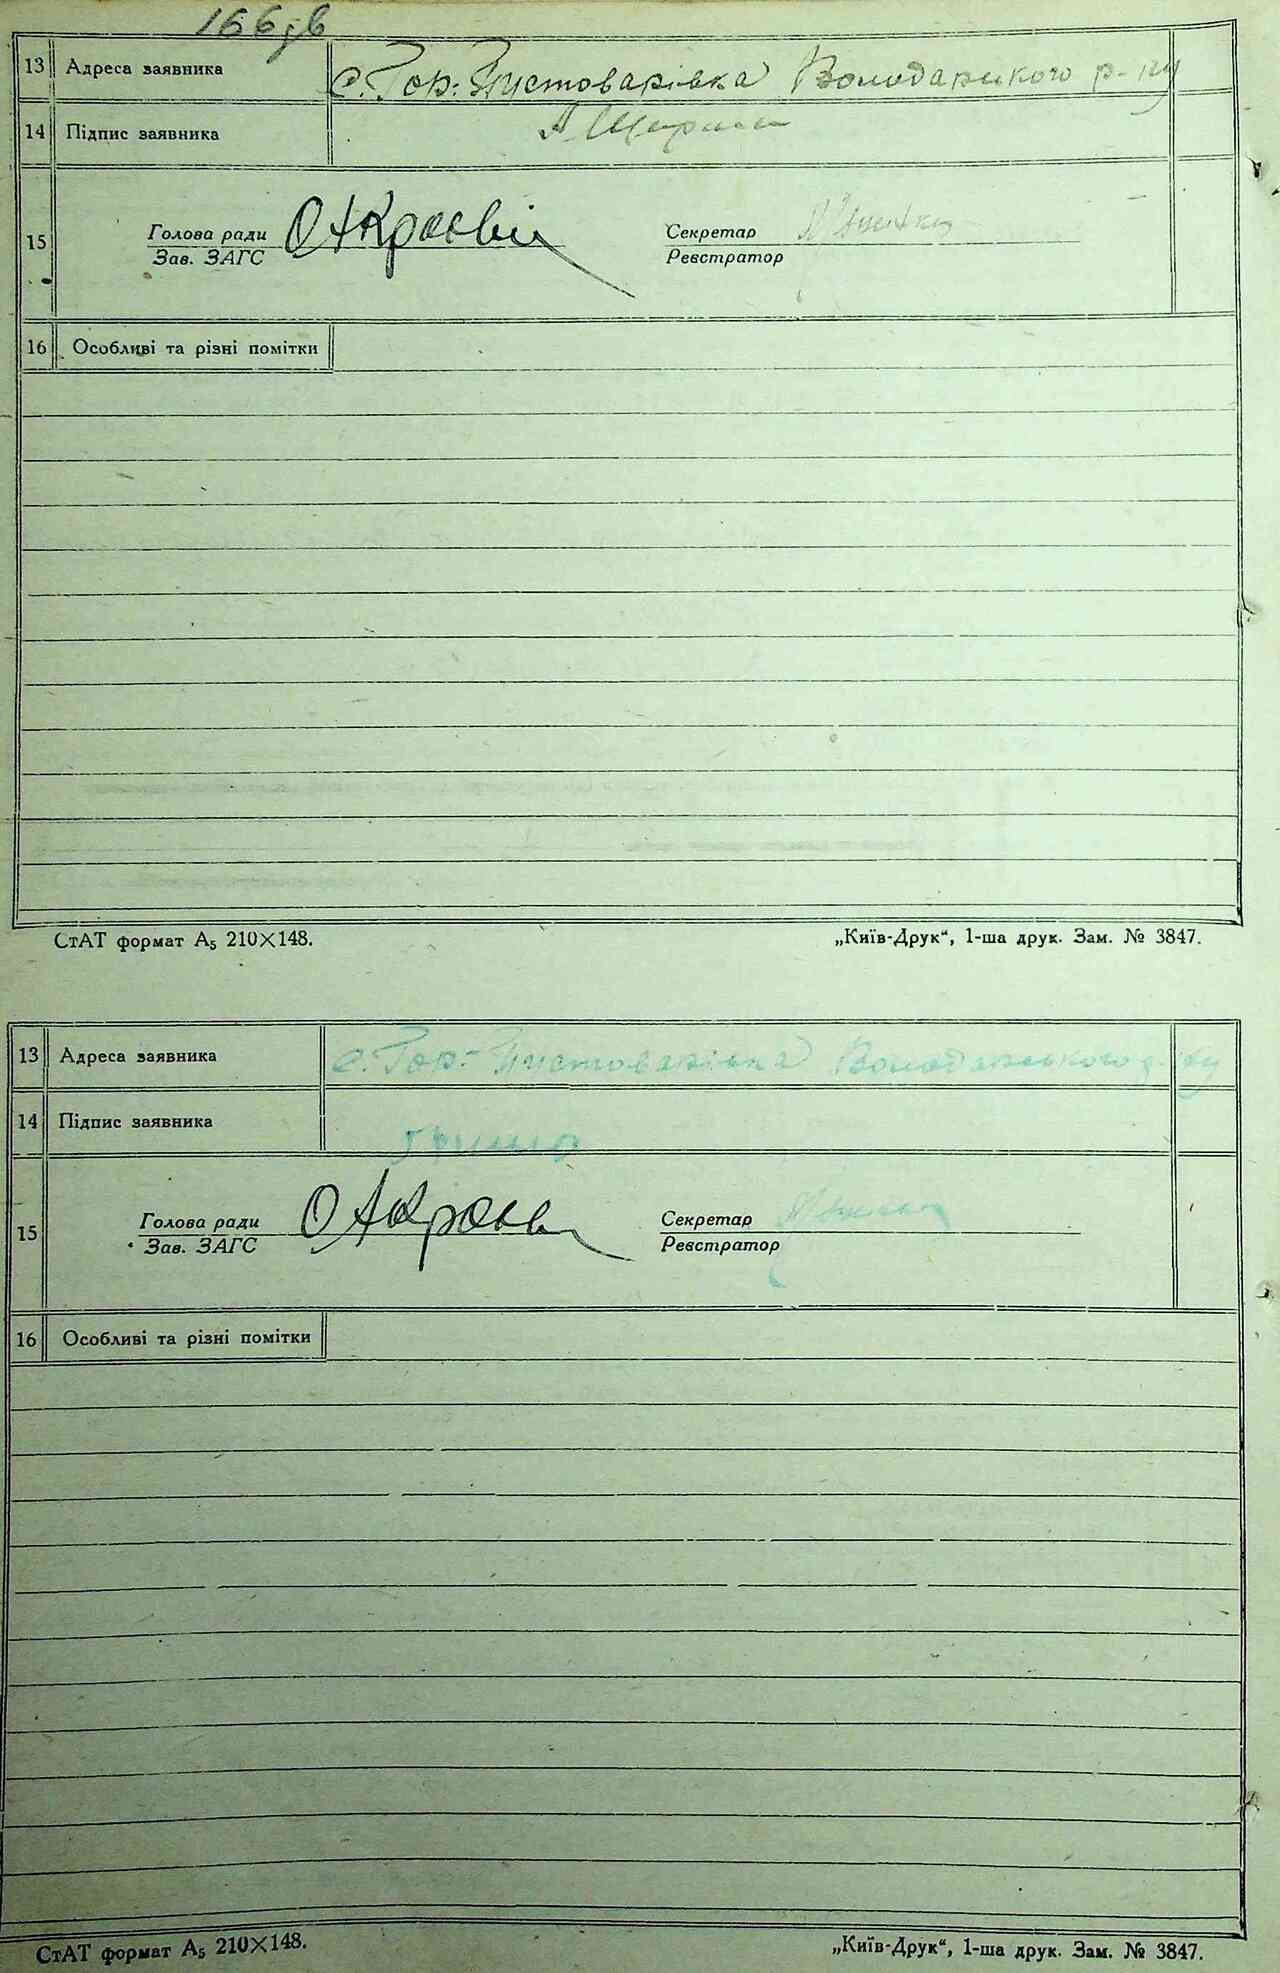 166 зв
13 Адреса заявника с. Гор.-Пустоварівка Володарського р-ну
14 Підпис заявника
15 Голова ради Секретар
Зав. ЗАГС Реєстратор
16 Особливі та різні помітки
СтАТ формат А₅ 210×148. „Київ-Друк“, 1-ша друк. Зам. № 3847.
13 Адреса заявника с. Гор.-Пустоварівка Володарського р-ну
14 Підпис заявника
15 Голова ради Секретар
Зав. ЗАГС Реєстратор
16 Особливі та різні помітки
СтАТ формат А₅ 210×148. „Київ-Друк“, 1-ша друк. Зам. № 3847.